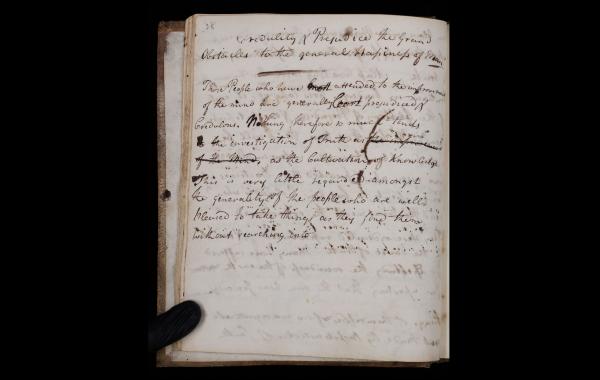 38
Credulity & Prejudice the Grand
Obstacles to the general Happiness of Man
Those People who have most attended to the improvement
of the mind are generally least prejudiced &
Credulous. Nothing therefore so much tends
to the investigation of Truth as the improvement
of the Mind, as the Cultivation of Knowledge
This is very little regarded amongst
the generality of the people who are well
pleased to take things as they find them
without searching into